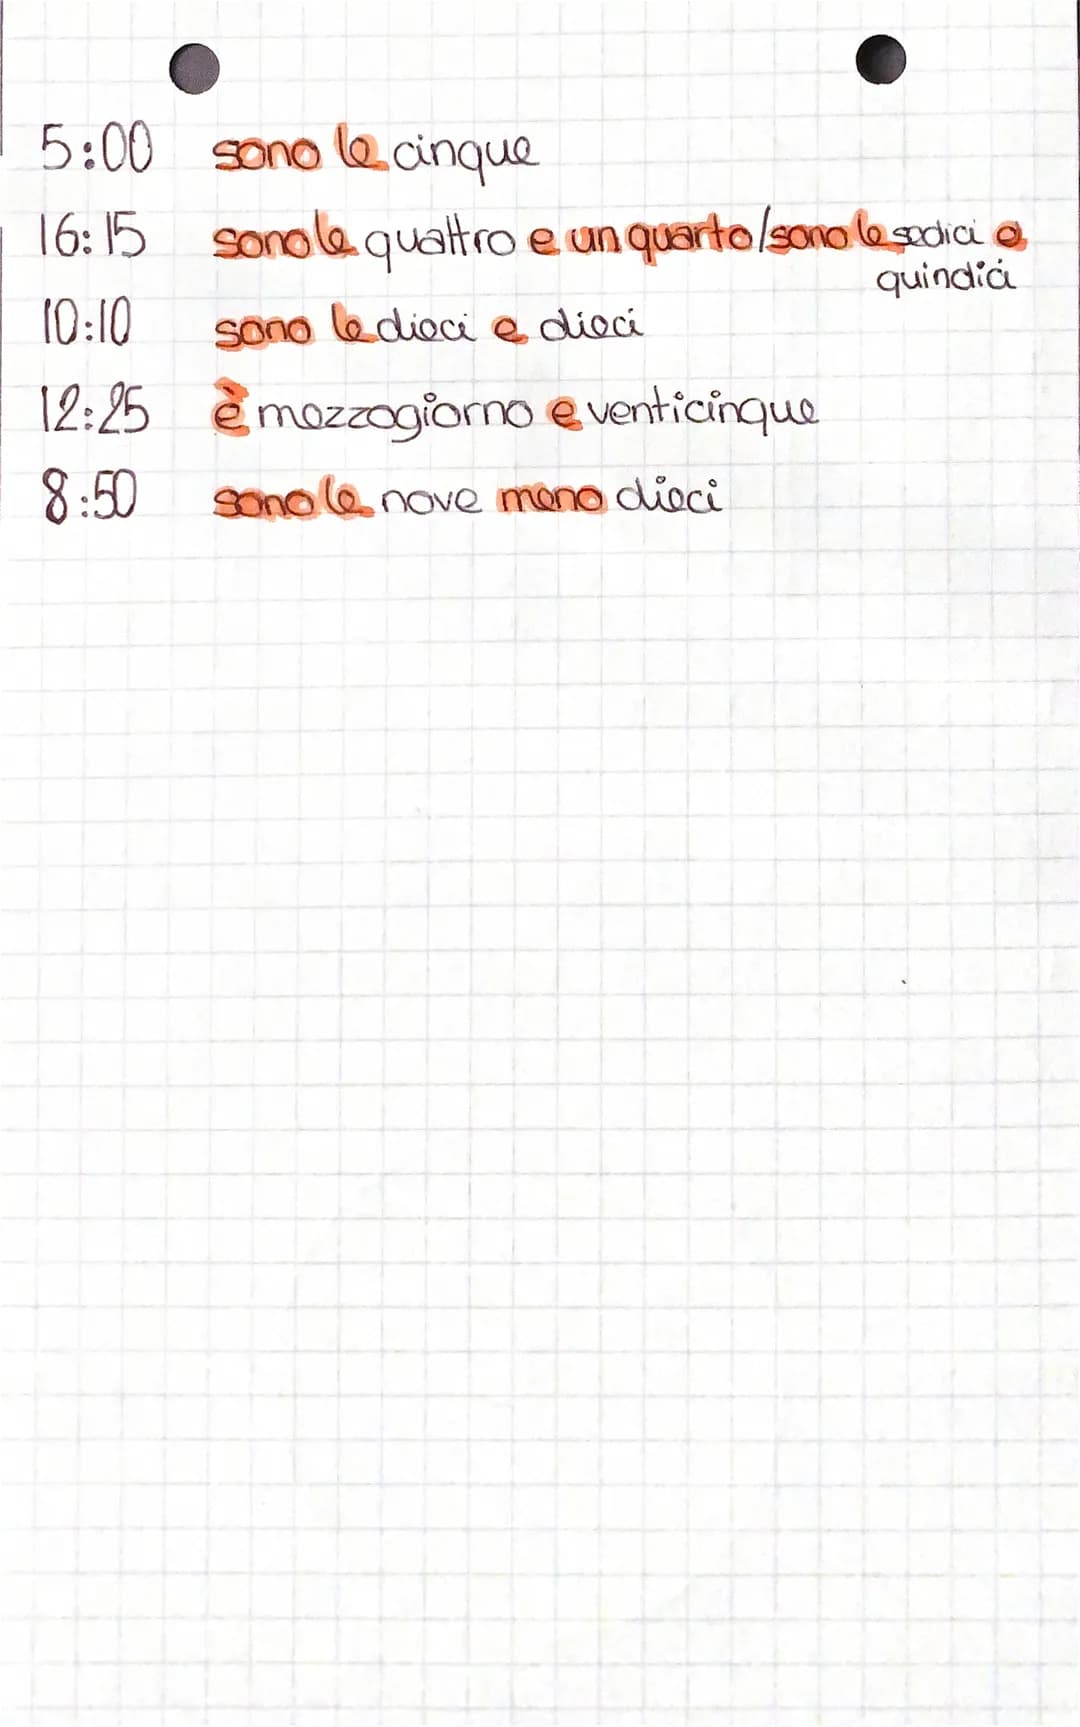 5:00 sono le cinque
16:15 sono le quattro e un quarto/sono le sedici e
quindici
10:10 sono le dieci e dieci
12:25 è mezzogiorno e venticinque
8:50 sono le nove meno dieci